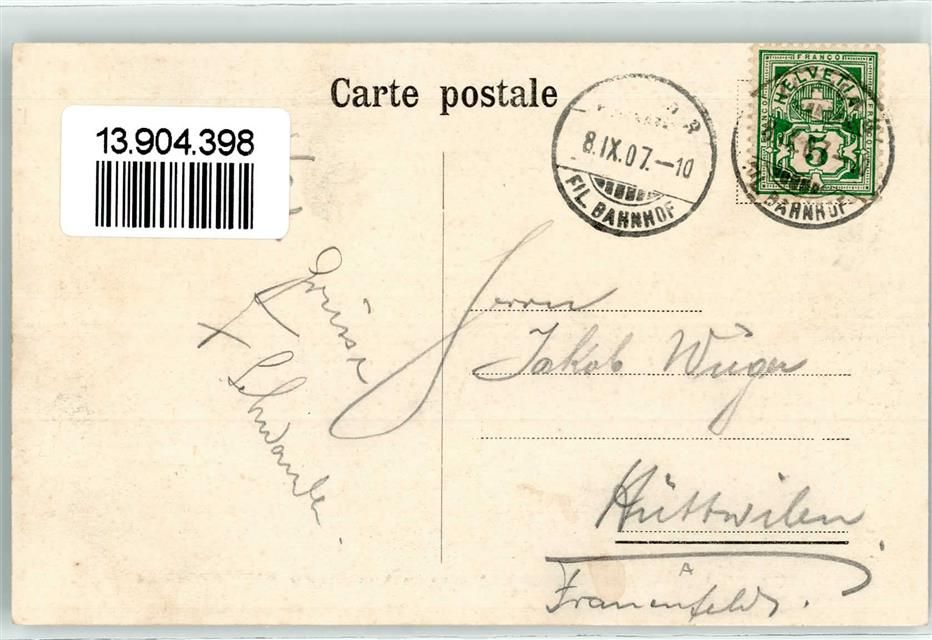 Carte postale
13.904.398
8.IX.07.–10
FIL. BAHNHOF
FRANCO
HELVETIA
5
FIL. BAHNHOF
Grüsse
Herrn
Jakob Wüger
Hüttwilen
Frauenfeld